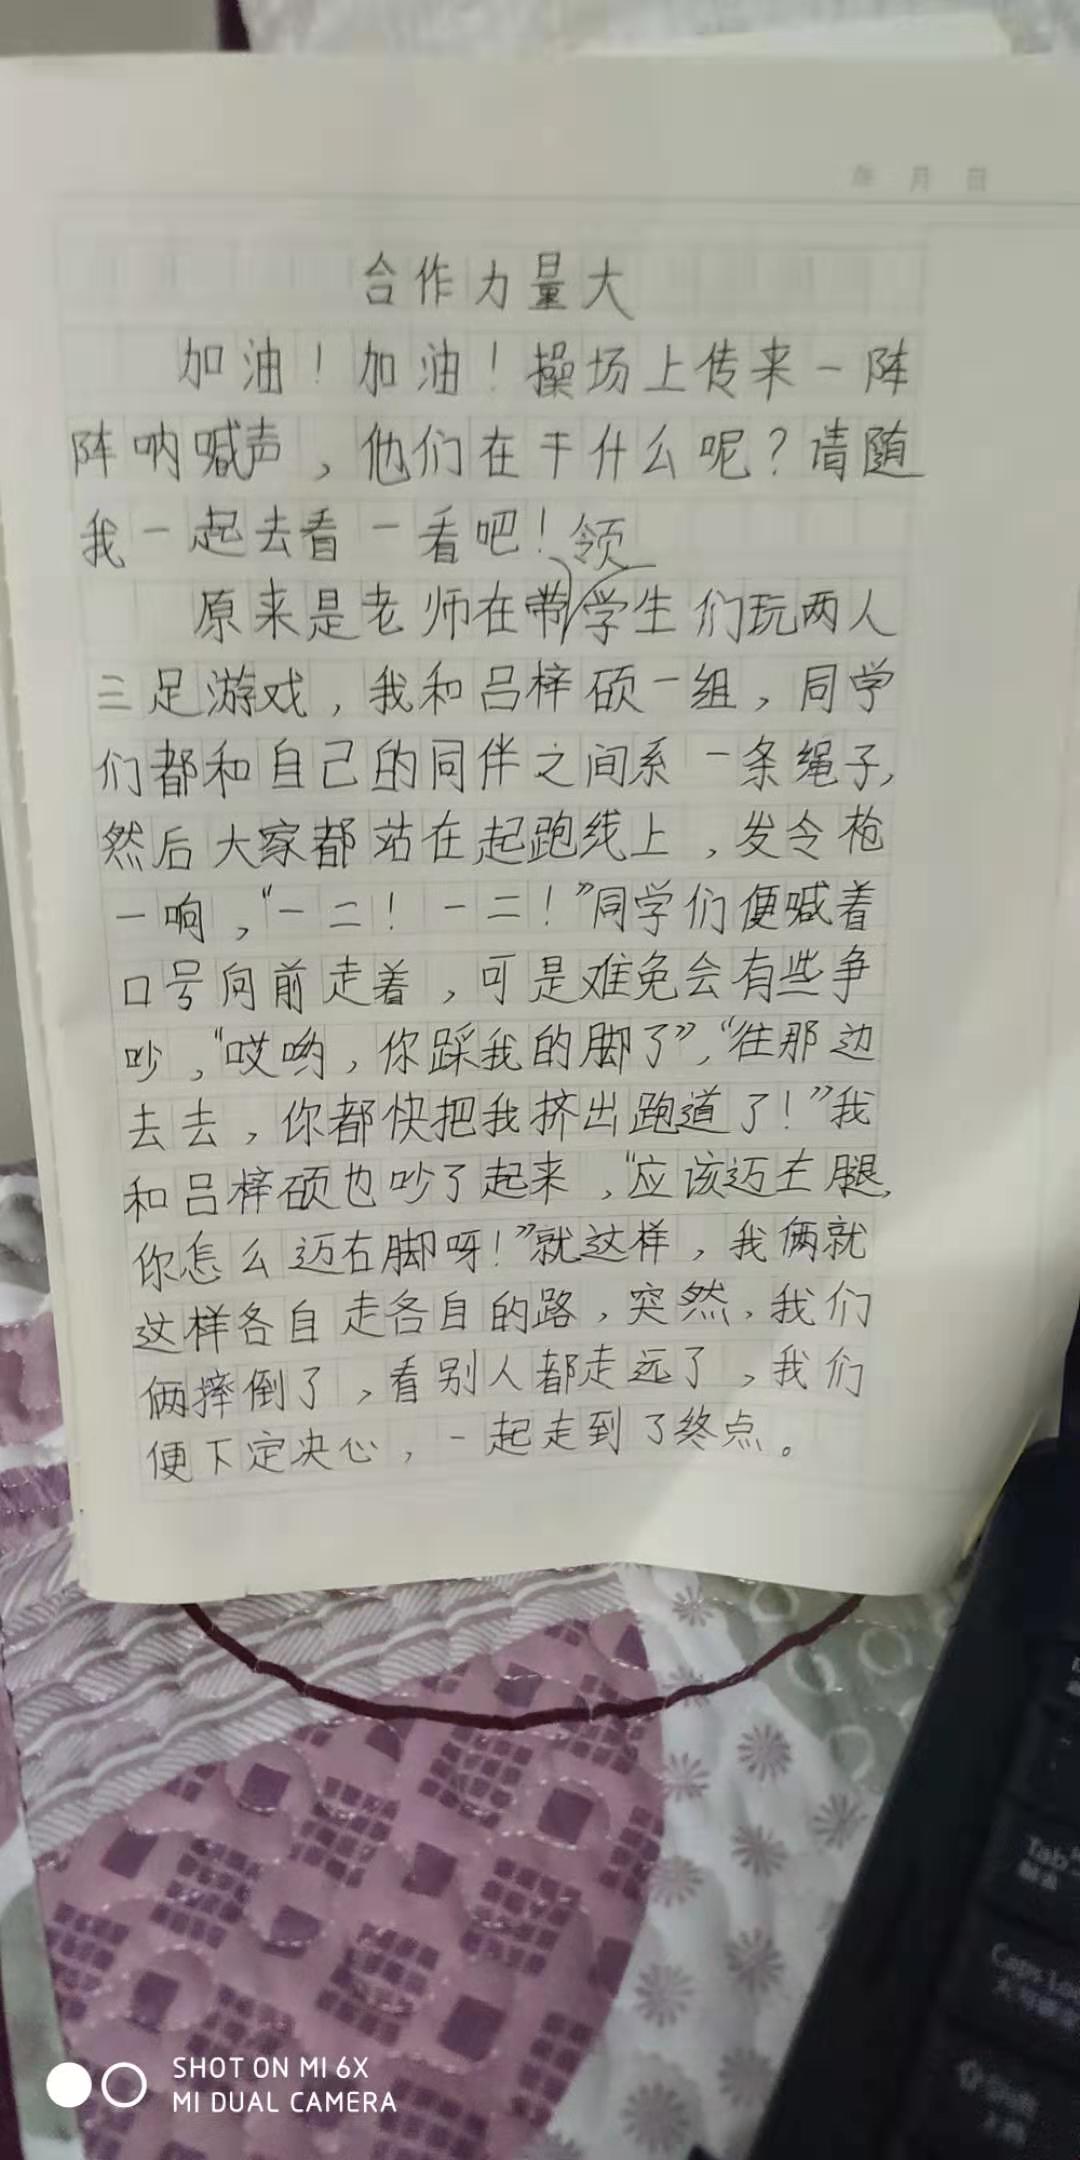 年 月 日
合作力量大
加油！加油！操场上传来一阵
阵呐喊声，他们在干什么呢？请随
我一起去看一看吧！
原来是老师在带领学生们玩两人
三足游戏，我和吕梓硕一组，同学
们都和自己的同伴之间系一条绳子，
然后大家都站在起跑线上，发令枪
一响，“一二！一二！”同学们便喊着
口号向前走着，可是难免会有些争
吵，“哎哟，你踩我的脚了”，“往那边
去去，你都快把我挤出跑道了！”我
和吕梓硕也吵了起来，“应该迈左腿，
你怎么迈右脚呀！”就这样，我俩就
这样各自走各自的路，突然，我们
俩摔倒了，看别人都走远了，我们
便下定决心，一起走到了终点。
Tab
Caps Lo
SHOT ON MI 6X
MI DUAL CAMERA